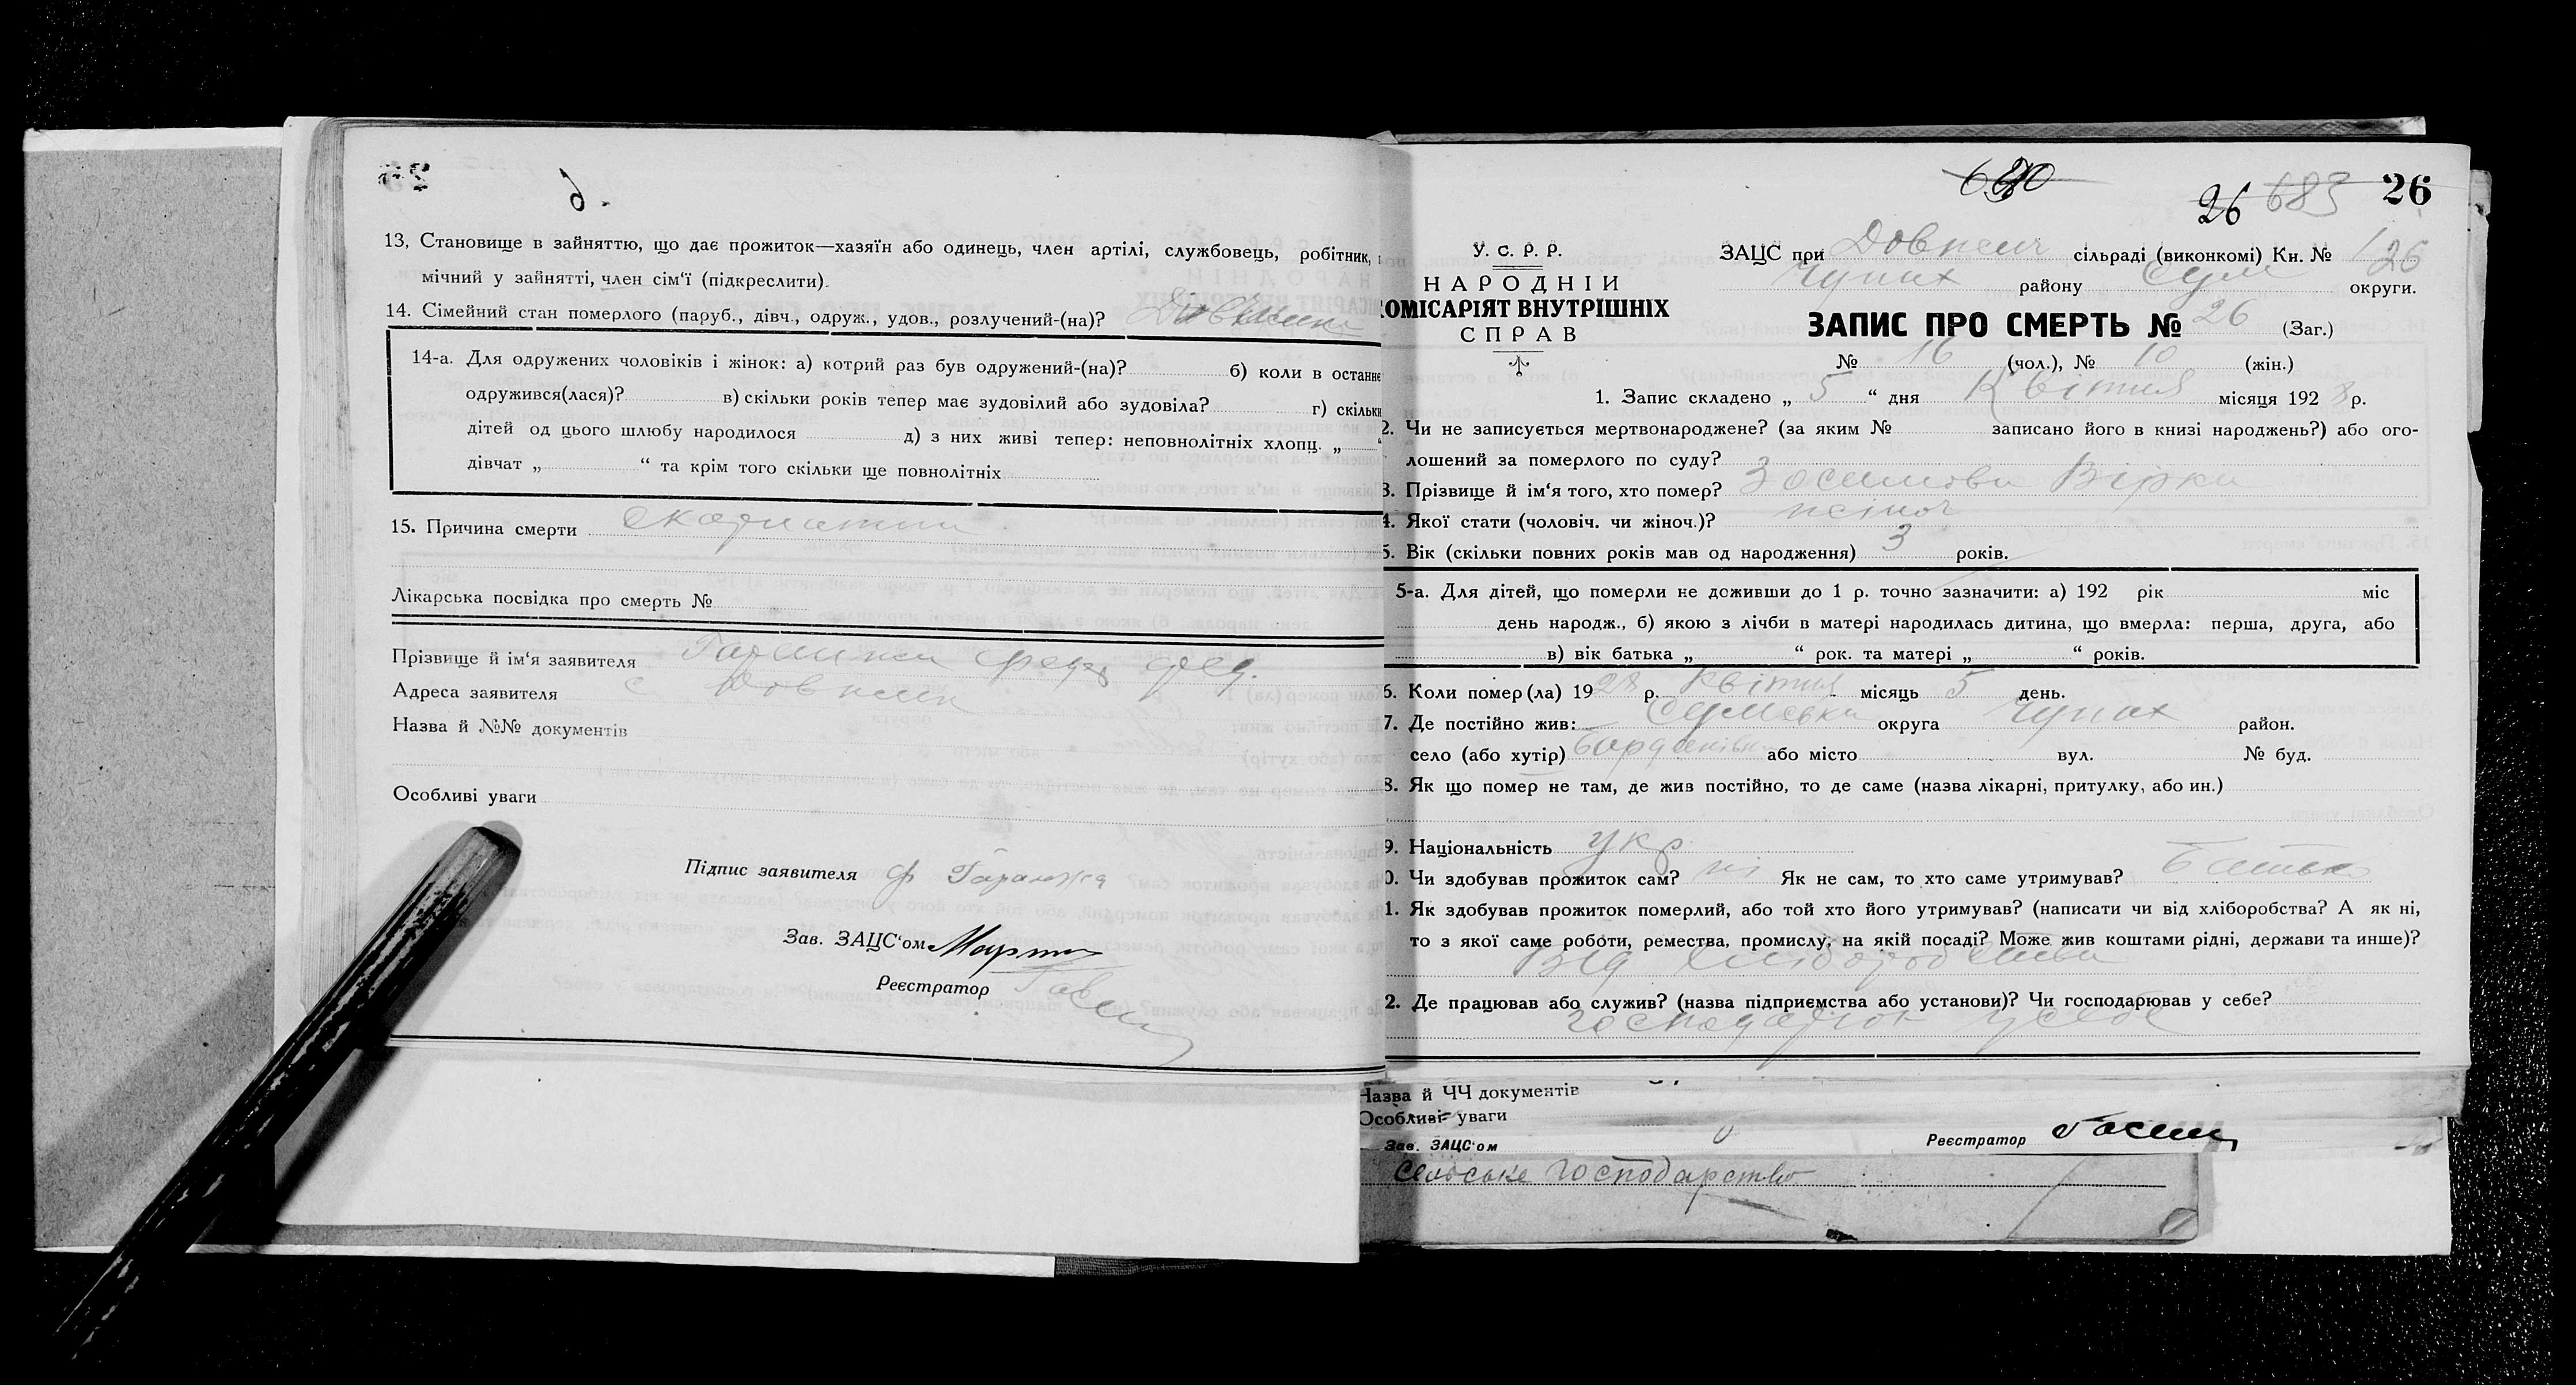 6.
13, Становище в зайняттю, що дає прожиток—хазяїн або одинець, член артілі, службовець, робітник,
мічний у зайнятті, член сім'ї (підкреслити).
14. Сімейний стан померлого (паруб., дівч., одруж., удов., розлучений-(на)?
14-а. Для одружених чоловіків і жінок: а) котрий раз був одружений-(на)? б) коли в останнє
одружився(лася)? в) скільки років тепер має зудовілий або зудовіла? г) скільки
дітей од цього шлюбу народилося д) з них живі тепер: неповнолітніх хлопц. „
дівчат „ “ та крім того скільки ще повнолітніх
15. Причина смерти скарлатина
Лікарська посвідка про смерть №
Прізвище й ім'я заявителя
Адреса заявителя с
Назва й №№ документів
Особливі уваги
Підпис заявителя Ф Гаранжа
Зав. ЗАЦС'ом
Реєстратор
26 683 26
У. С. Р. Р.
НАРОДНІЙ
КОМІСАРІЯТ ВНУТРІШНІХ
СПРАВ
ЗАЦС при сільраді (виконкомі) Кн. № 1 26
Чупах району Сум округи.
ЗАПИС ПРО СМЕРТЬ № 26 (Заг.)
№ 16 (чол.), № 10 (жін.)
1. Запис складено „ 5 “ дня Квітня місяця 1928 р.
2. Чи не записується мертвонароджене? (за яким № записано його в книзі народжень?) або ого-
лошений за померлого по суду?
3. Прізвище й ім'я того, хто помер? Зосимова Вірка
4. Якої стати (чоловіч. чи жіноч.)? жіноч
5. Вік (скільки повних років мав од народження) 3 років.
5-а. Для дітей, що померли не доживши до 1 р. точно зазначити: а) 192 рік міс
день народж., б) якою з лічби в матері народилась дитина, що вмерла: перша, друга, або
в) вік батька „ “ рок. та матері „ “ років.
6. Коли помер (ла) 1928 р. Квітня місяць 5 день.
7. Де постійно жив: Сумська округа Чупах район.
село (або хутір) або місто вул. № буд.
8. Як що помер не там, де жив постійно, то де саме (назва лікарні, притулку, або ин.)
9. Національність укр
0. Чи здобував прожиток сам? ні Як не сам, то хто саме утримував? Батько
1. Як здобував прожиток померлий, або той хто його утримував? (написати чи від хліборобства? А як ні,
то з якої саме роботи, ремества, промислу, на якій посаді? Може жив коштами рідні, держави та инше)?
Від хліборобства
2. Де працював або служив? (назва підприємства або установи)? Чи господарював у себе?
господарює у себе
Назва й ЧЧ документів
Особливі уваги
Зав. ЗАЦС'ом Реєстратор
Сельське господарство